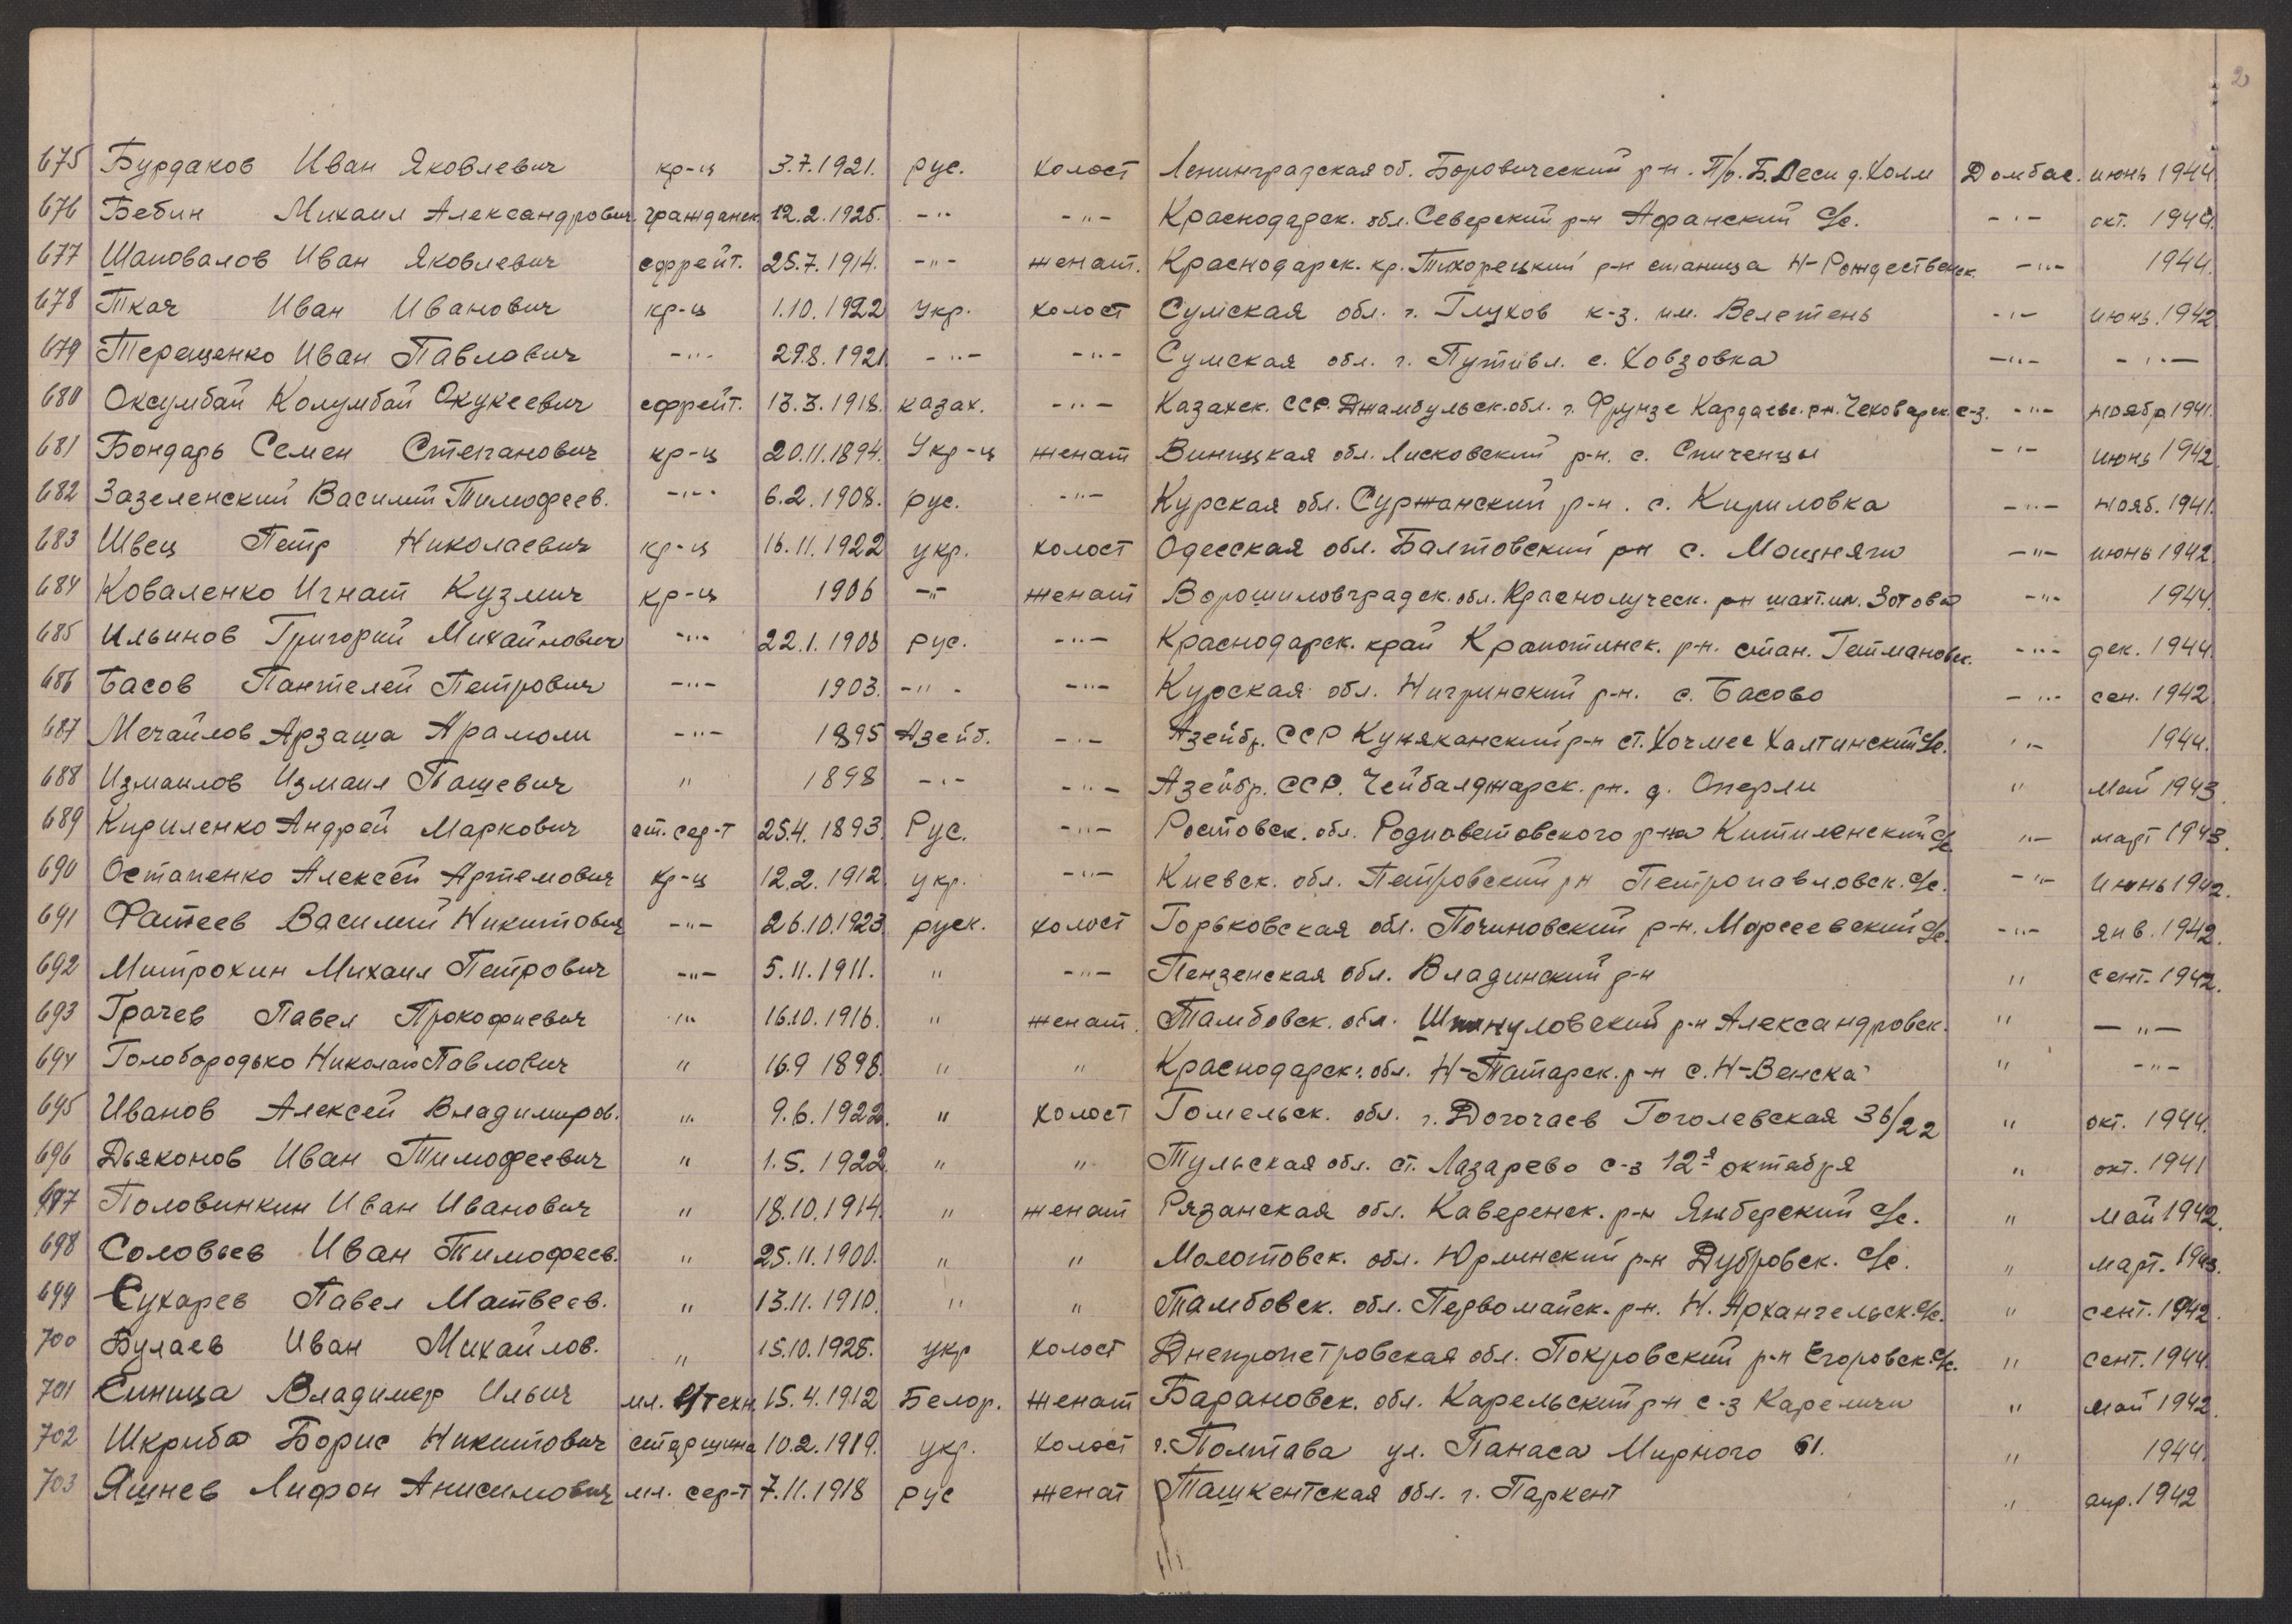 2
675 Бурдаков Иван Яковлевич кр-ц 3.7.1921. рус. холост Ленинградская об. Боровический р-н. П/о. Б.Леси д. Холм Домбас. июнь 1944
676 Бебин Михаил Александрович. гражданск. 12.2.1925. -"- -"- Краснодарск. обл. Северский р-н Афанский с/с. -"- окт. 1944.
677 Шаповалов Иван Яковлевич ефрейт. 25.7.1914. -"- женат. Краснодарск. кр. Тихорецкий р-н станица Н-Рождественск. -"- 1944.
678 Ткач Иван Иванович кр-ц 1.10.1922 Укр. холост Сумская обл. г. Глухов к-з. им. Велетень -"- июнь.1942
679 Терещенко Иван Павлович -"- 29.8.1921. -"- -"- Сумская обл. г. Путивл. с. Ховзовка -"- -"-
680 Оксумбай Колумбай Окукеевич ефрейт. 13.3.1918. казах. -"- Казахск. ССР. Джамбульск.обл. г. Фрунзе Кардаевс. рн. с-з. -"- ноябр 1941.
681 Бондарь Семен Степанович кр-ц 20.11.1894. Укр-ц женат Виницкая обл. Лисковский р-н. с. Спиченцы -"- июнь 1942.
682 Зазеленский Василий Тимофеев. -"- 6.2.1908. рус. -"- Курская обл. Суржанский р-н. с. Кириловка -"- нояб. 1941.
683 Швец Петр Николаевич кр-ц 16.11.1922 укр. холост Одесская обл. Балтовский рн с. Мощняги -"- июнь 1942.
684 Коваленко Игнат Кузмич кр-ц 1906 -"- женат Ворошиловградск. обл. Краснолуческ. рн шахт. им. Зотова -"- 1944.
685 Ильинов Григорий Михайлович -"- 22.1.1908 рус. -"- Краснодарск. край Крапотинск. р-н. стан. Гетмановск. -"- дек. 1944.
686 Басов Пантелей Петрович -"- 1903. -"- -"- Курская обл. Нигринский р-н. с. Басово -"- сен. 1942.
687 Мечаилов Арзаша Арамоли -"- 1895 Азейб. -"- Азейбр. ССР Куняканский р-н ст. Хочмес Халтинский с/с. "- 1944.
688 Измаилов Измаил Пашевич " 1898 -"- -"- Азейбр. ССР. Чейбалджарск. рн. д. Оперли " май 1943.
689 Кириленко Андрей Маркович ст. сер-т 25.4.1893. Рус. -"- Ростовск. обл. Родиоветовского р-на Китиленский с/с "- март 1943.
690 Остапенко Алексей Артемович кр-ц 12.2.1912 укр. -"- Киевск. обл. Петровский рн Петропавловск. с/с. -"- июнь 1942.
691 Фатеев Василий Никитович -"- 26.10.1923 руск. холост Горьковская обл. Починовский р-н. Марсеевский с/с. -"- янв. 1942.
692 Митрохин Михаил Петрович -"- 5.11.1911. " -"- Пензенская обл. Владинский р-н " сент. 1942.
693 Грачев Павел Прокофиевич "- 16.10.1916. " женат. Тамбовск. обл. р-н Александровск. " -"-
694 Голобородько Николай Павлович " 16.9 1898. " " Краснодарск. обл. Н-Татарск. р-н с. Н-Венска " -"-
695 Иванов Алексей Владимиров. " 9.6.1922. " холост Гомельск. обл. г. Догочаев Гоголевская 36/22 " окт. 1944.
696 Дьяконов Иван Тимофеевич " 1.5.1922. " " Тульская обл. ст. Лазарево с-з 12-я октября " окт. 1941
697 Половинкин Иван Иванович " 18.10.1914. " женат Рязанская обл. Каверенск. р-н Ямберский с/с. " май 1942.
698 Соловьев Иван Тимофеев. " 25.11.1900. " " Молотовск. обл. Юрлинский р-н Дубровск. с/с. " март. 1943.
699 Сухарев Павел Матвеев. " 13.11.1910. " " Тамбовск. обл. Первомайск. р-н. Н. Архангельск. с/с. " сент. 1942.
700 Булаев Иван Михайлов. " 15.10.1925. укр холост Днепропетровская обл. Покровский р-н Егоровск. с/с. " сент. 1944.
701 Синица Владимер Ильич мл. в/техн. 15.4.1912 Белор. женат Барановск. обл. Карельский р-н с-з Кареличи " май 1942.
702 Шкриба Борис Никитович старшина 10.2.1919. укр. холост г. Полтава ул. Панаса Мирного 61. " 1944.
703 Яшнев Лифон Анисимович мл. сер-т 7.11.1918 рус женат Ташкентская обл. г. Паркент " апр. 1942